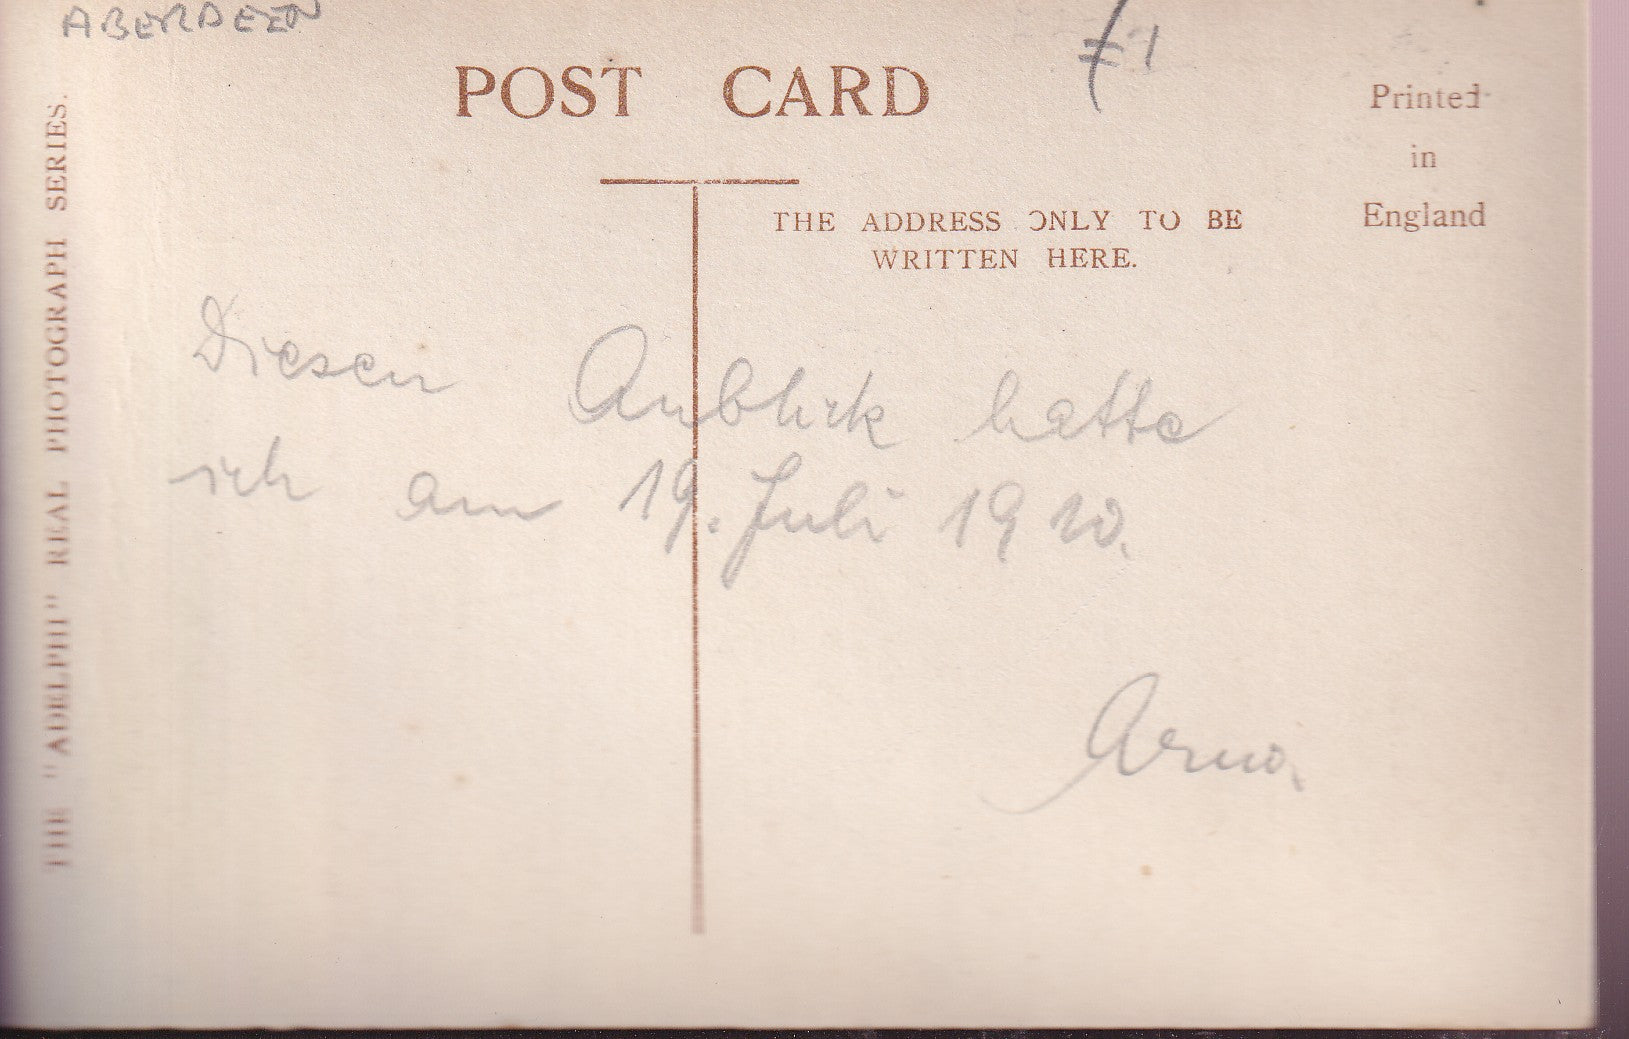 ABERDEEN
£1
POST CARD
Printed
in
England
THE ADDRESS ONLY TO BE
WRITTEN HERE.
THE "ADELPHI" REAL PHOTOGRAPH SERIES.
Diesen Anblick hatte
ich am 19. Juli 1920.
Arno.